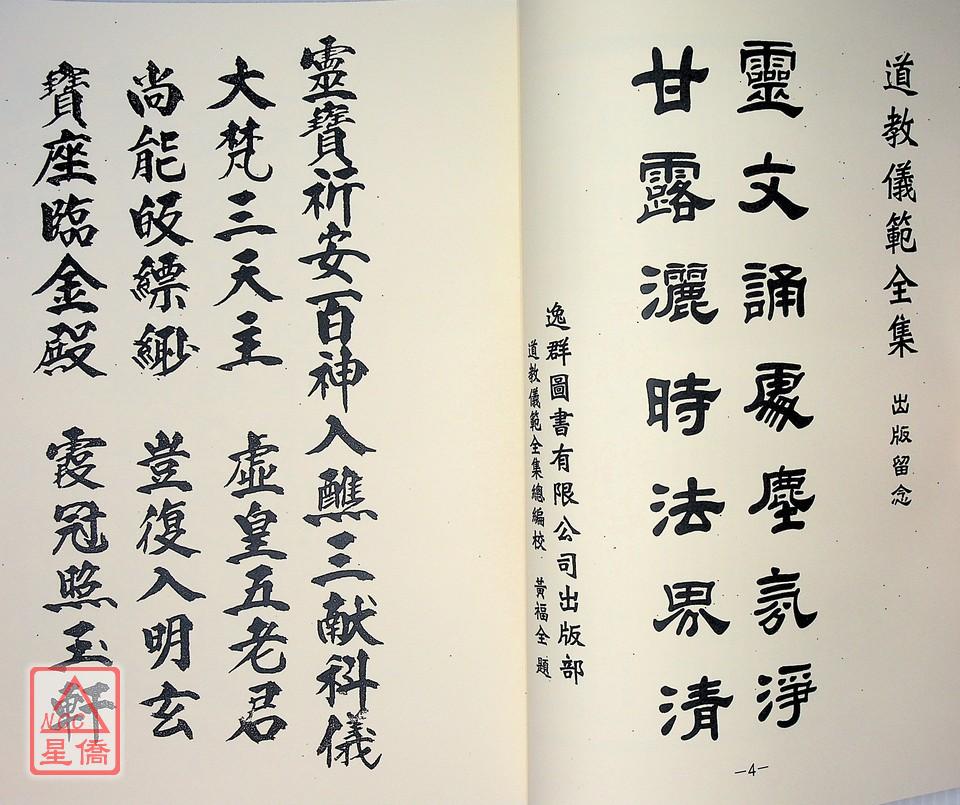 道教儀範全集 出版留念
靈文誦處塵氛淨
甘露灑時法界清
逸群圖書有限公司出版部
道教儀範全集總編校 黃福全 題
—4—
靈寶祈安百神入醮三献科儀
大梵三天主 虛皇五老君
尚能皈縹緲 豈復入明玄
寶座臨金殿 霞冠照玉軒
NCC
星僑